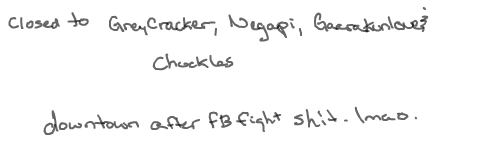 Closed to GreyCracker, Negapi, Gaaratunlove &
Chuckles
downtown after FB fight shit. lmao.